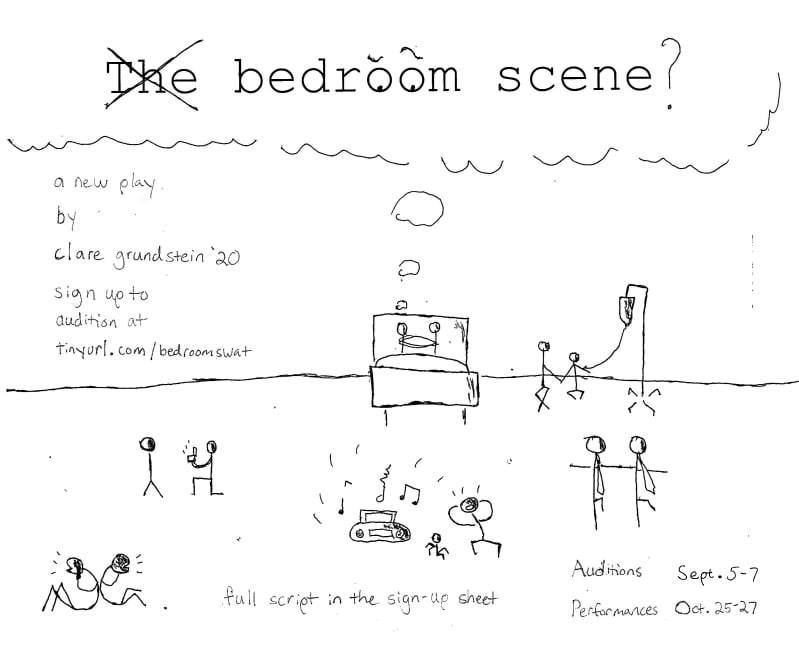 The bedroom scene?
a new play
by
clare grundstein '20
sign up to
audition at
tinyurl.com/bedroomswat
full script in the sign-up sheet
Auditions Sept. 5-7
Performances Oct. 25-27